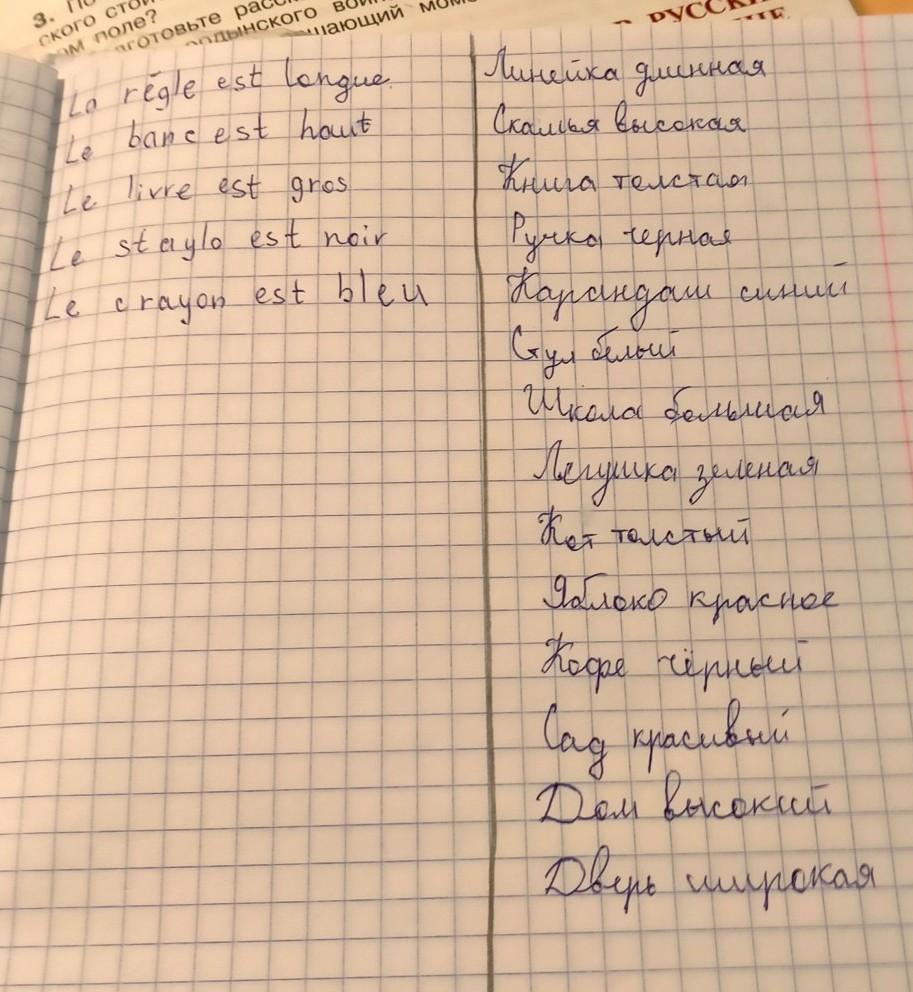 3. По
ского стоя
ом поле?
готовьте расс
одынского вои
шающий моме
В РУССКИ
La régle est longue.
Le banc est haut
Le livre est gros
Le staylo est noir
Le crayon est bleu
Линейка длинная
Скамья высокая
Книга толстая
Ручка черная
Карандаш синий
Стул белый
Школа большая
Лягушка зеленая
Кот толстый
Яблоко красное
Кофе чёрный
Сад красивый
Дом высокий
Дверь широкая